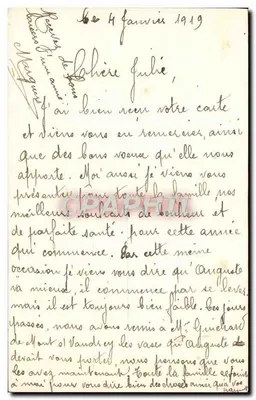 Le 4 Janvier 1919
Recevez de bons
baisers d'un ami
Marquis
Chère Julie,
J'ai bien reçu votre carte
et viens vous en remercier, ainsi
que des bons voeux qu'elle nous
apporte. Moi aussi je viens vous
présenter pour toute la famille, nos
meilleurs souhaits de bonheur et
de parfaite santé pour cette année
qui commence. Par cette même
occasion je viens vous dire qu'Auguste
va mieux, il commence par se lever
mais il est toujours bien faible. Ces jours
passés, nous avons remis à Mr
de Mont s/ Vaudrey les vases qu'Auguste
devait vous porter, nous pensons que vous
les avez maintenant. Toute la famille
à moi pour vous dire bien des choses ainsi qu'à vos
parents
CPAPHIL